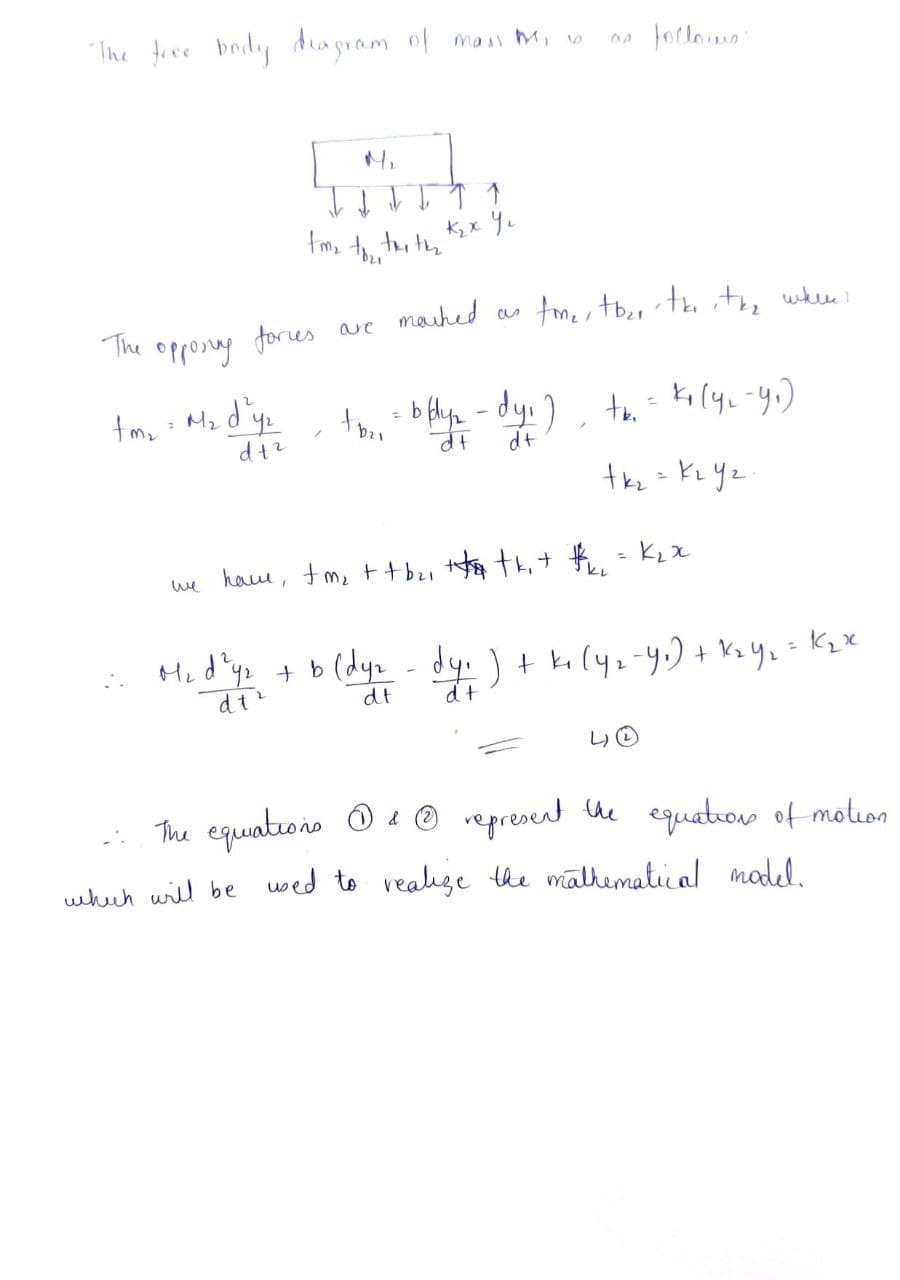 The free body diagram of mass M₁ is as follows:
M₂
fm₂ fb₂₁ fk₁ fk₂ K₂x y₂
The opposing forces are marked as fm₂, fb₂₁, fk₁, fk₂ where:
fm₂ = M₂ d²y₂/dt², fb₂₁ = b(dy₂/dt - dy₁/dt), fk₁ = K₁(y₂-y₁)
fk₂ = K₂y₂.
we have, fm₂ + fb₂₁ + fk₁ + fk₂ = K₂x
∴ M₂ d²y₂/dt² + b(dy₂/dt - dy₁/dt) + K₁(y₂-y₁) + K₂y₂ = K₂x
↳ ②
∴ The equations ① & ② represent the equations of motion
which will be used to realize the mathematical model.